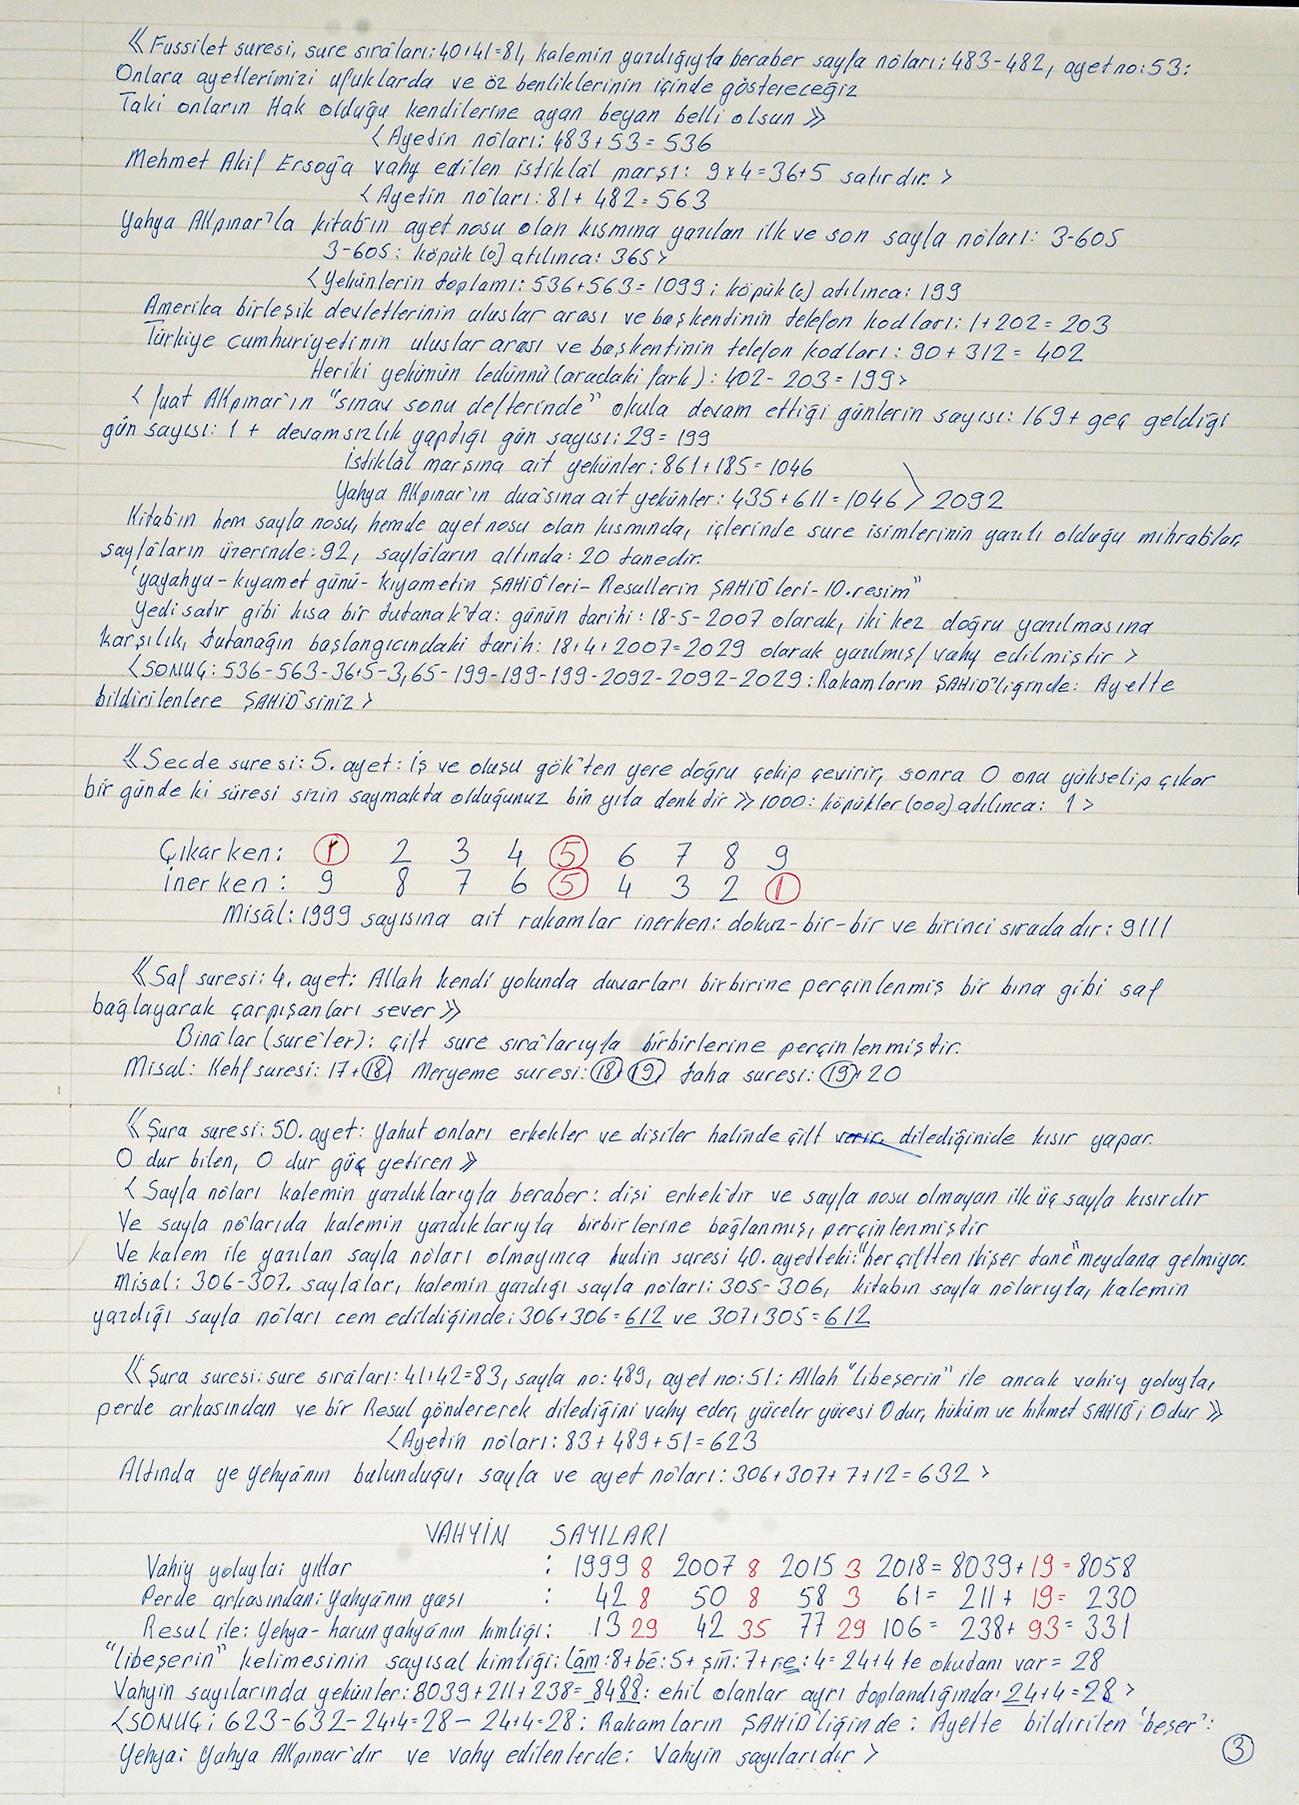 《Fussilet suresi, sure sıraları: 40+41=81, kalemin yazdığıyla beraber sayfa nôları: 483-482, ayet no:53:
Onlara ayetlerimizi ufuklarda ve öz benliklerinin içinde göstereceğiz
Taki onların Hak olduğu kendilerine ayan beyan belli olsun》
<Ayetin nôları: 483+53=536
Mehmet Akif Ersoy'a vahy edilen istiklâl marşı: 9x4=36+5 satırdır.>
<Ayetin nôları: 81+482=563
Yahya AKpınar'la kitab'ın ayet nosu olan kısmına yazılan ilk ve son sayfa nôları: 3-605
3-605: köpük (o) atılınca: 365>
<Yekûnlerin toplamı: 536+563=1099; köpük (o) atılınca: 199
Amerika birleşik devletlerinin uluslar arası ve başkendinin telefon kodları: 1+202=203
Türkiye cumhuriyetinin uluslar arası ve başkentinin telefon kodları: 90+312=402
Heriki yekünün ledünnü (aradaki fark): 402-203=199>
<fuat AKpınar'ın "sınav sonu defterinde" okula devam ettiği günlerin sayısı: 169+ geç geldiği
gün sayısı: 1+ devamsızlık yaptığı gün sayısı: 29=199
istiklâl marşına ait yekünler: 861+185=1046
Yahya AKpınar'ın duasına ait yekünler: 435+611=1046> 2092
Kitab'ın hem sayfa nosu, hemde ayet nosu olan kısmında, içlerinde sure isimlerinin yazılı olduğu mihrablar,
sayfâların üzerinde: 92, sayfâların altında: 20 tanedir.
'yayahya-kıyamet günü-kıyametin ŞAHiD'leri-Resullerin ŞAHiD'leri-10.resim"
Yedi satır gibi kısa bir tutanak'ta: günün tarihi: 18-5-2007 olarak, iki kez doğru yazılmasına
karşılık, tutanağın başlangıcındaki tarih: 18+4+2007=2029 olarak yazılmış/vahy edilmiştir>
<SONUÇ: 536-563-36+5-3,65-199-199-199-2092-2092-2029: Rakamların ŞAHiD'liğinde: Ayette
bildirilenlere ŞAHiD'siniz>
《Secde suresi: 5. ayet: iş ve oluşu gök'ten yere doğru çekip çevirir, sonra O ona yükselip çıkar
bir günde ki süresi sizin saymakta olduğunuz bin yıla denktir》1000: köpükler (000) atılınca: 1>
Çıkarken: 1 2 3 4 5 6 7 8 9
inerken: 9 8 7 6 5 4 3 2 1
Misâl: 1999 sayısına ait rakamlar inerken: dokuz-bir-bir ve birinci sıradadır: 9111
《Saf suresi: 4. ayet: Allah kendi yolunda duvarları birbirine perçinlenmiş bir bina gibi saf
bağlayarak çarpışanları sever》
Binâlar (sure'ler): çift sure sıra'larıyla birbirlerine perçinlenmiştir.
Misal: Kehf suresi: 17+18, Meryeme suresi: 18+19, taha suresi: 19+20
《Şura suresi: 50. ayet: yahut onları erkekler ve dişiler halinde çift verir, dilediğinide kısır yapar.
O dur bilen, O dur güç yetiren》
<Sayfa nôları kalemin yazdıklarıyla beraber: dişi erkektir ve sayfa nosu olmayan ilk üç sayfa kısırdır
Ve sayfa nôlarıda kalemin yazdıklarıyla birbirlerine bağlanmış, perçinlenmiştir
Ve kalem ile yazılan sayfa nôları olmayınca hudin suresi 40. ayetteki: "her çiftten ikişer tane" meydana gelmiyor.
Misal: 306-307. sayfalar, kalemin yazdığı sayfa nôları: 305-306, kitabın sayfa nôlarıyla, kalemin
yazdığı sayfa nôları cem edildiğinde: 306+306=612 ve 307+305=612
《Şura suresi: sure sıraları: 41+42=83, sayfa no: 489, ayet no: 51: Allah "libeşerin" ile ancak vahiy yoluyla,
perde arkasından ve bir Resul göndererek dilediğini vahy eder, yüceler yücesi Odur, hüküm ve hikmet SAHiB'i Odur》
<Ayetin nôları: 83+489+51=623
Altında ye yehyânın bulunduğu, sayfa ve ayet nôları: 306+307+7+12=632>
VAHYİN SAYILARI
Vahiy yoluyla: yıllar : 1999 8 2007 8 2015 3 2018=8039+19=8058
Perde arkasından: yahyânın yaşı : 42 8 50 8 58 3 61= 211+ 19= 230
Resul ile: Yehya-harun yahyânın kimliği: 13 29 42 35 77 29 106= 238+ 93=331
"libeşerin" kelimesinin sayısal kimliği: lâm: 8+bê: 5+ şin: 7+re: 4=24+4 te okutanı var=28
Vahyin sayılarında yekünler: 8039+211+238=8488: ehil olanlar ayrı toplandığında: 24+4=28>
<SONUÇ: 623-632-24+4=28-24+4=28: Rakamların ŞAHiD'liğinde: Ayette bildirilen 'beşer':
Yehya: Yahya AKpınar'dır ve vahy edilenlerde: Vahyin sayılarıdır>
3